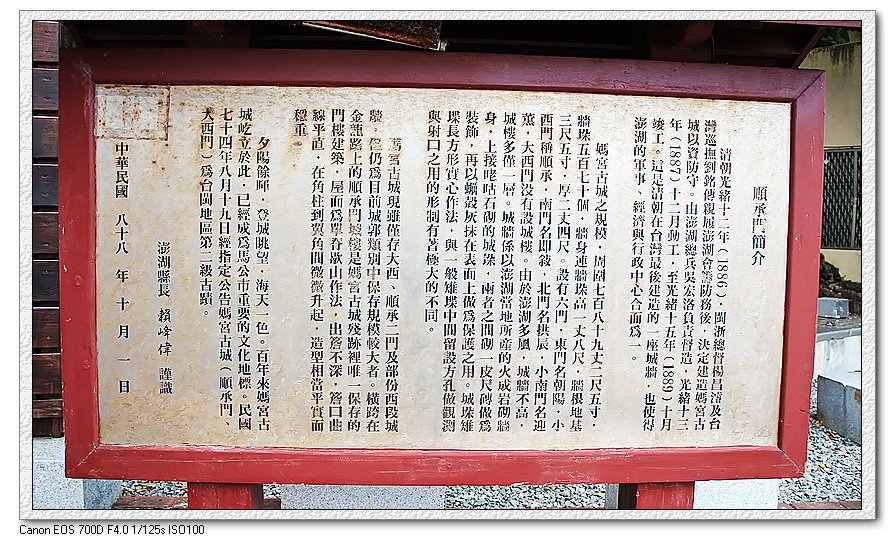 順承門簡介
清朝光緒十二年（1886），閩浙總督楊昌濬及台
灣巡撫劉銘傳親履澎湖會籌防務後，決定建造媽宮古
城以資防守。由澎湖總兵吳宏洛負責督造，光緒十三
年（1887）十二月動工，至光緒十五年（1889）十月
竣工。這是清朝在台灣最後建造的一座城牆，也使得
澎湖的軍事、經濟與行政中心合而為一。
媽宮古城之規模，周圍七百八十九丈二尺五寸，
牆垛五百七十個，牆身連牆垛高一丈八尺，牆根地基
三尺五寸，厚二丈四尺。設有六門，東門名朝陽，小
西門稱順承，南門名即敍，北門名拱辰，小南門名迎
薰，大西門沒有設城樓。由於澎湖多風，城牆不高，
城樓多僅一層。城牆係以澎湖當地所產的火成岩砌牆
身，上接咾咕石砌的城垛，兩者之間砌一皮尺磚做為
裝飾，再以蠣殼灰抹在表面上做為保護之用。城垛雉
堞長方形實心作法，與一般雉堞中間留設方孔做觀測
與射口之用的形制有著極大的不同。
媽宮古城現雖僅存大西、順承二門及部份西段城
牆，但仍為目前城郭類別中保存規模較大者。橫跨在
金龍路上的順承門城樓是媽宮古城殘跡裡唯一保存的
門樓建築，屋面為單脊歇山作法，出簷不深，簷口曲
線平直，在角柱到翼角間微微升起，造型相當平實而
穩重。
夕陽餘暉，登城眺望，海天一色。百年來媽宮古
城屹立於此，已經成為馬公市重要的文化地標。民國
七十四年八月十九日經指定公告媽宮古城（順承門、
大西門）為台閩地區第二級古蹟。
澎湖縣長 賴峰偉 謹識
中華民國 八十八 年 十 月 一 日
Canon EOS 700D F4.0 1/125s ISO100